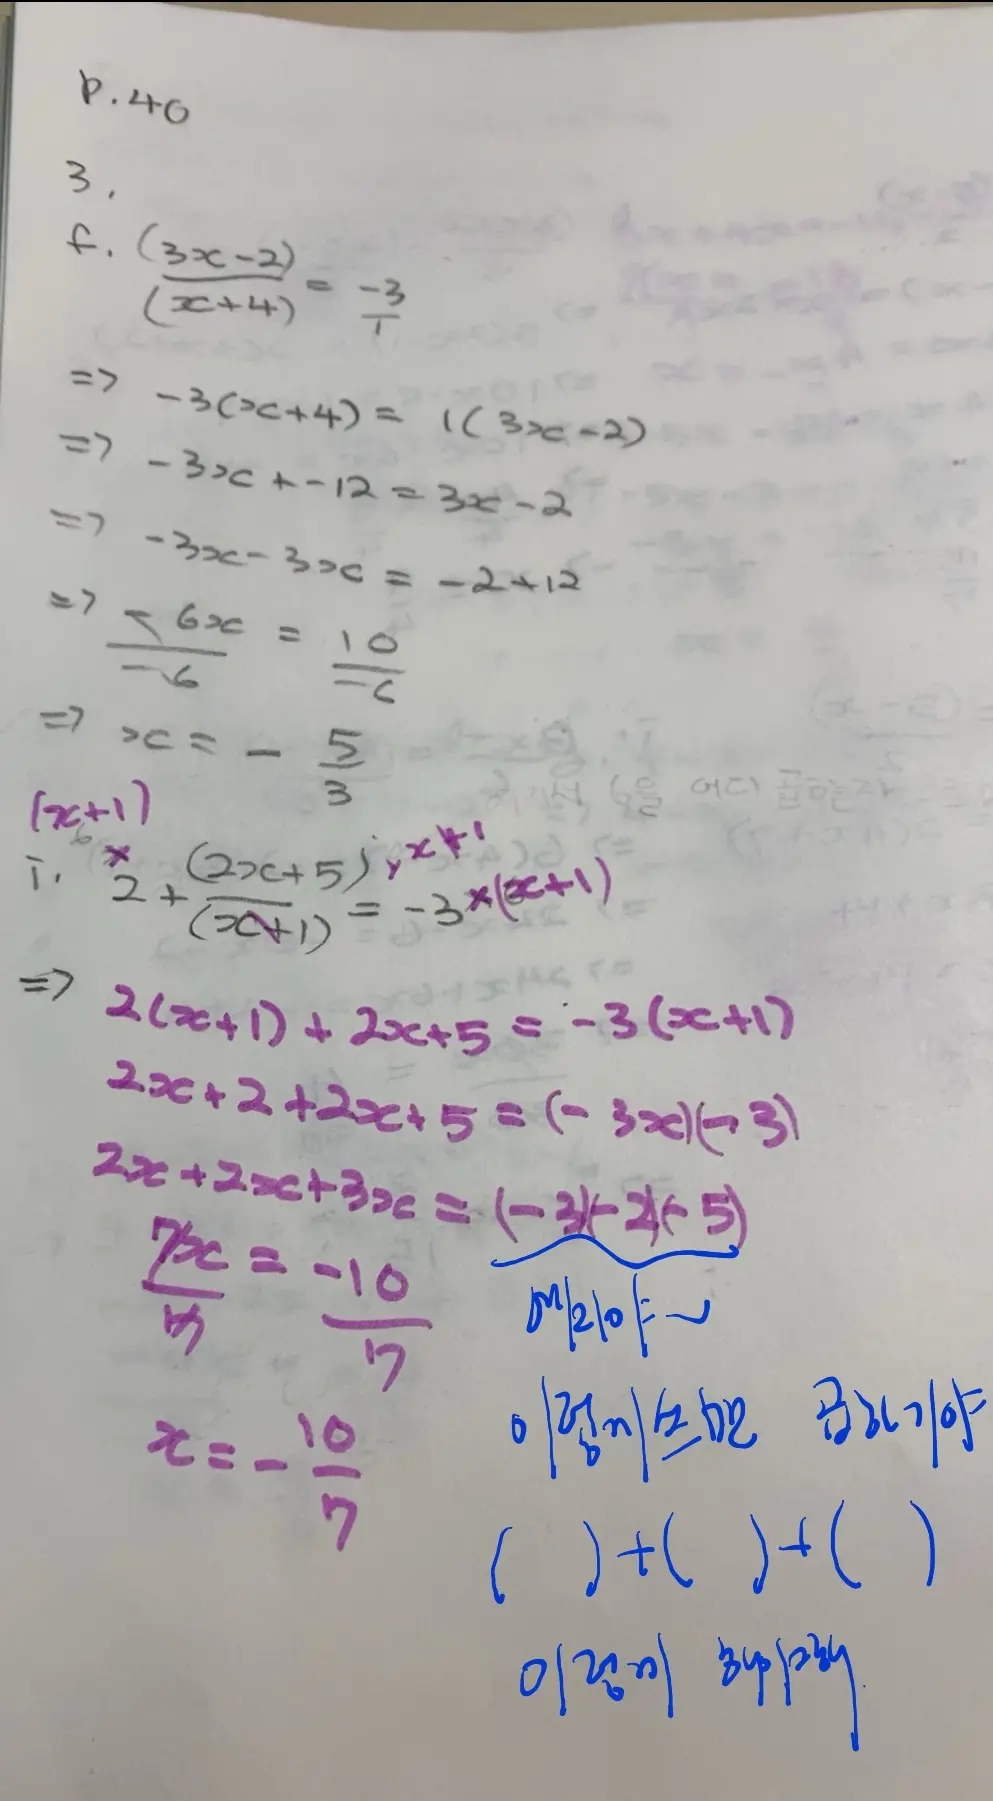 p.40
3.
f. (3x-2)/(x+4) = -3/1
=> -3(x+4) = 1(3x-2)
=> -3x+-12 = 3x-2
=> -3x-3x = -2+12
=> -6x/-6 = 10/-6
=> x = -5/3
(x+1)
i. ×2 + (2x+5)/(x+1) ×x+1 = -3×(x+1)
=> 2(x+1) + 2x+5 = -3(x+1)
2x+2+2x+5 = (-3x)(-3)
2x+2x+3x = (-3)(-2)(-5)
7x/7 = -10/7
x = -10/7
이렇게 쓰면 곱하기야
( )+( )+( )
이렇게